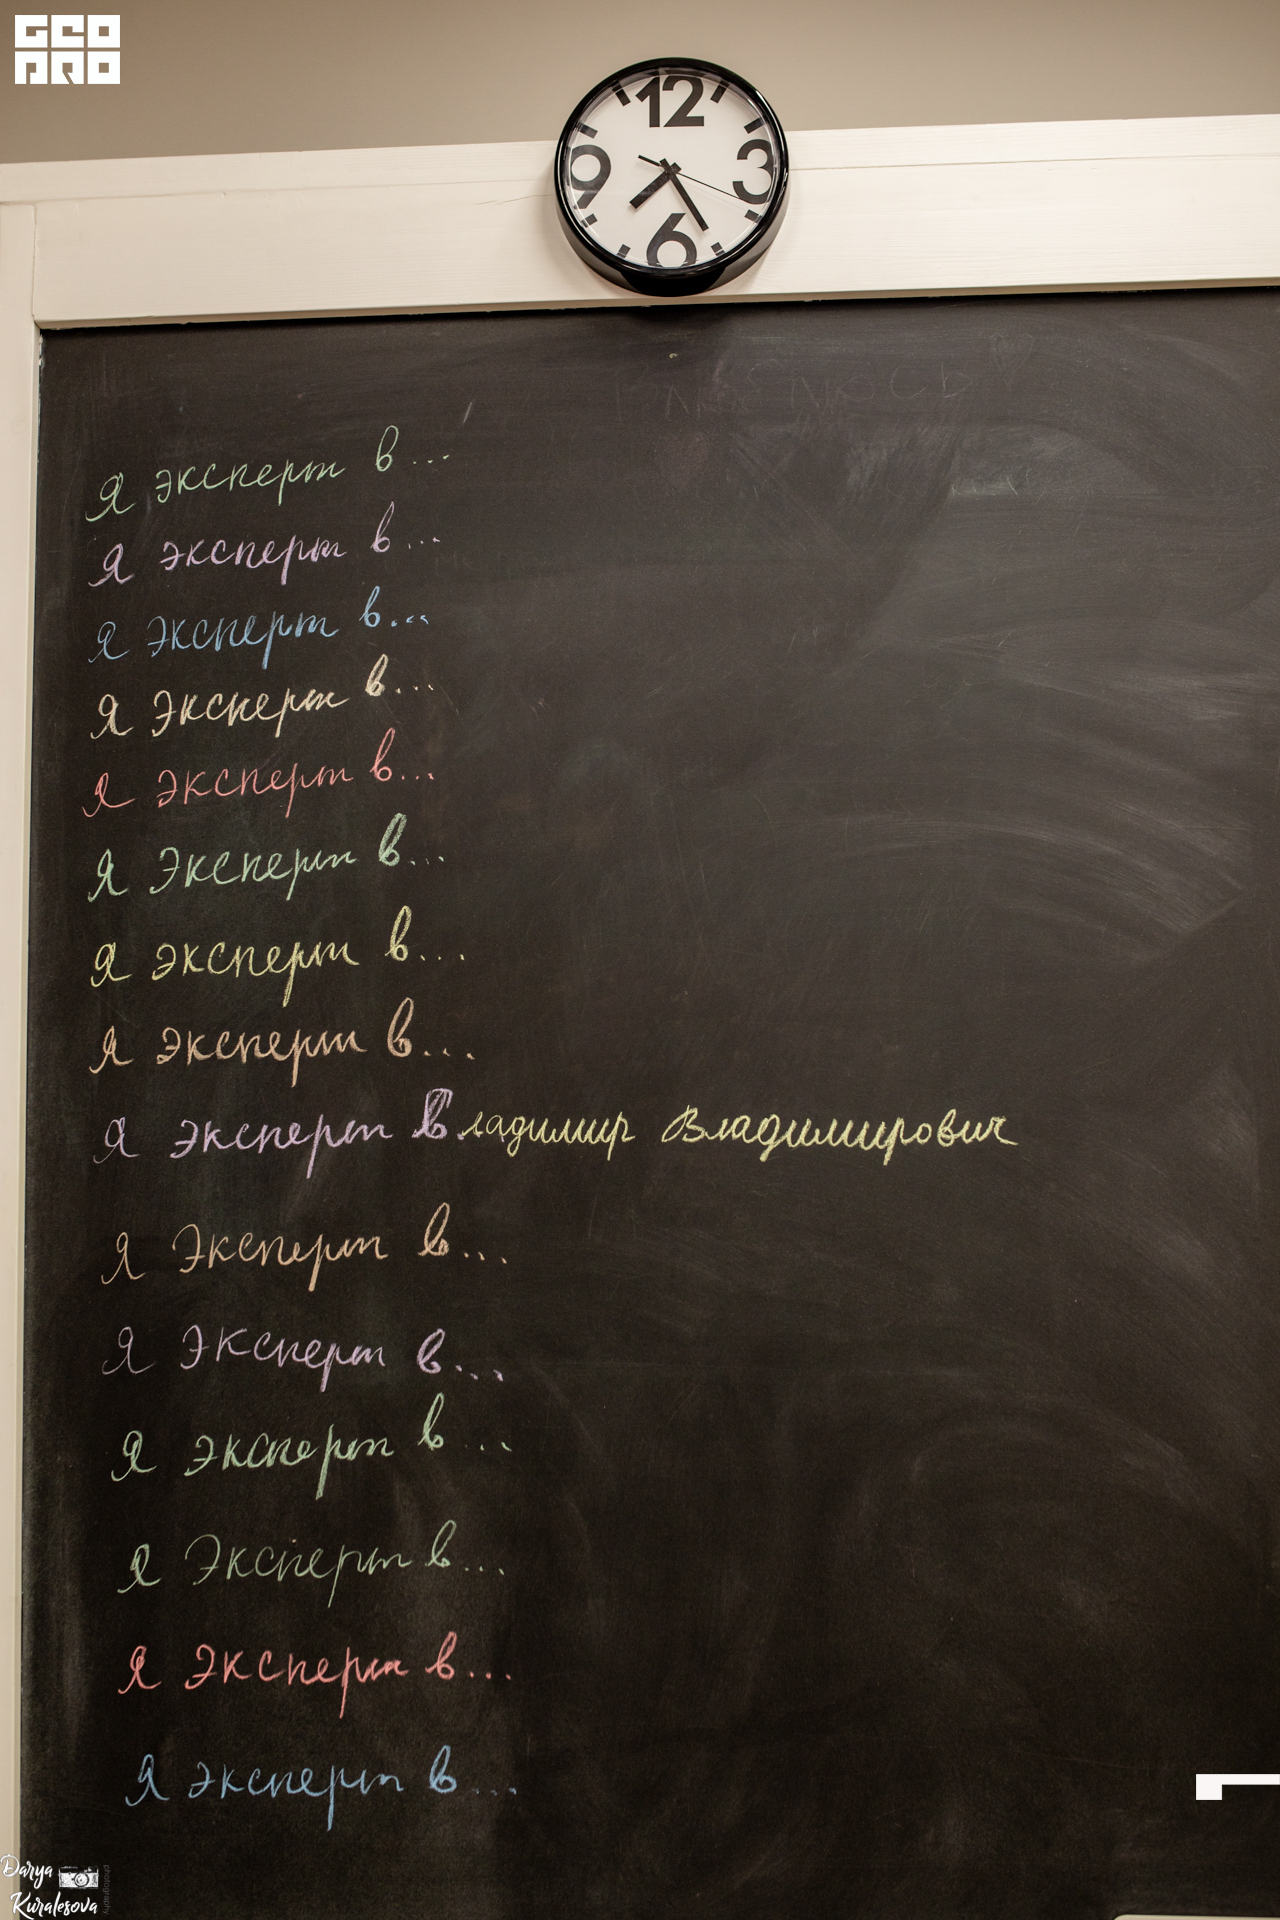 GEO
PRO
12
9 3
6
Я эксперт в...
Я эксперт в...
Я эксперт в...
Я эксперт в...
Я эксперт в...
Я эксперт в...
Я эксперт в...
Я эксперт в...
Я эксперт Владимир Владимирович
Я эксперт в...
Я эксперт в...
Я эксперт в...
Я эксперт в...
Я эксперт в...
Я эксперт в...
Darya
Kuralesova
photography